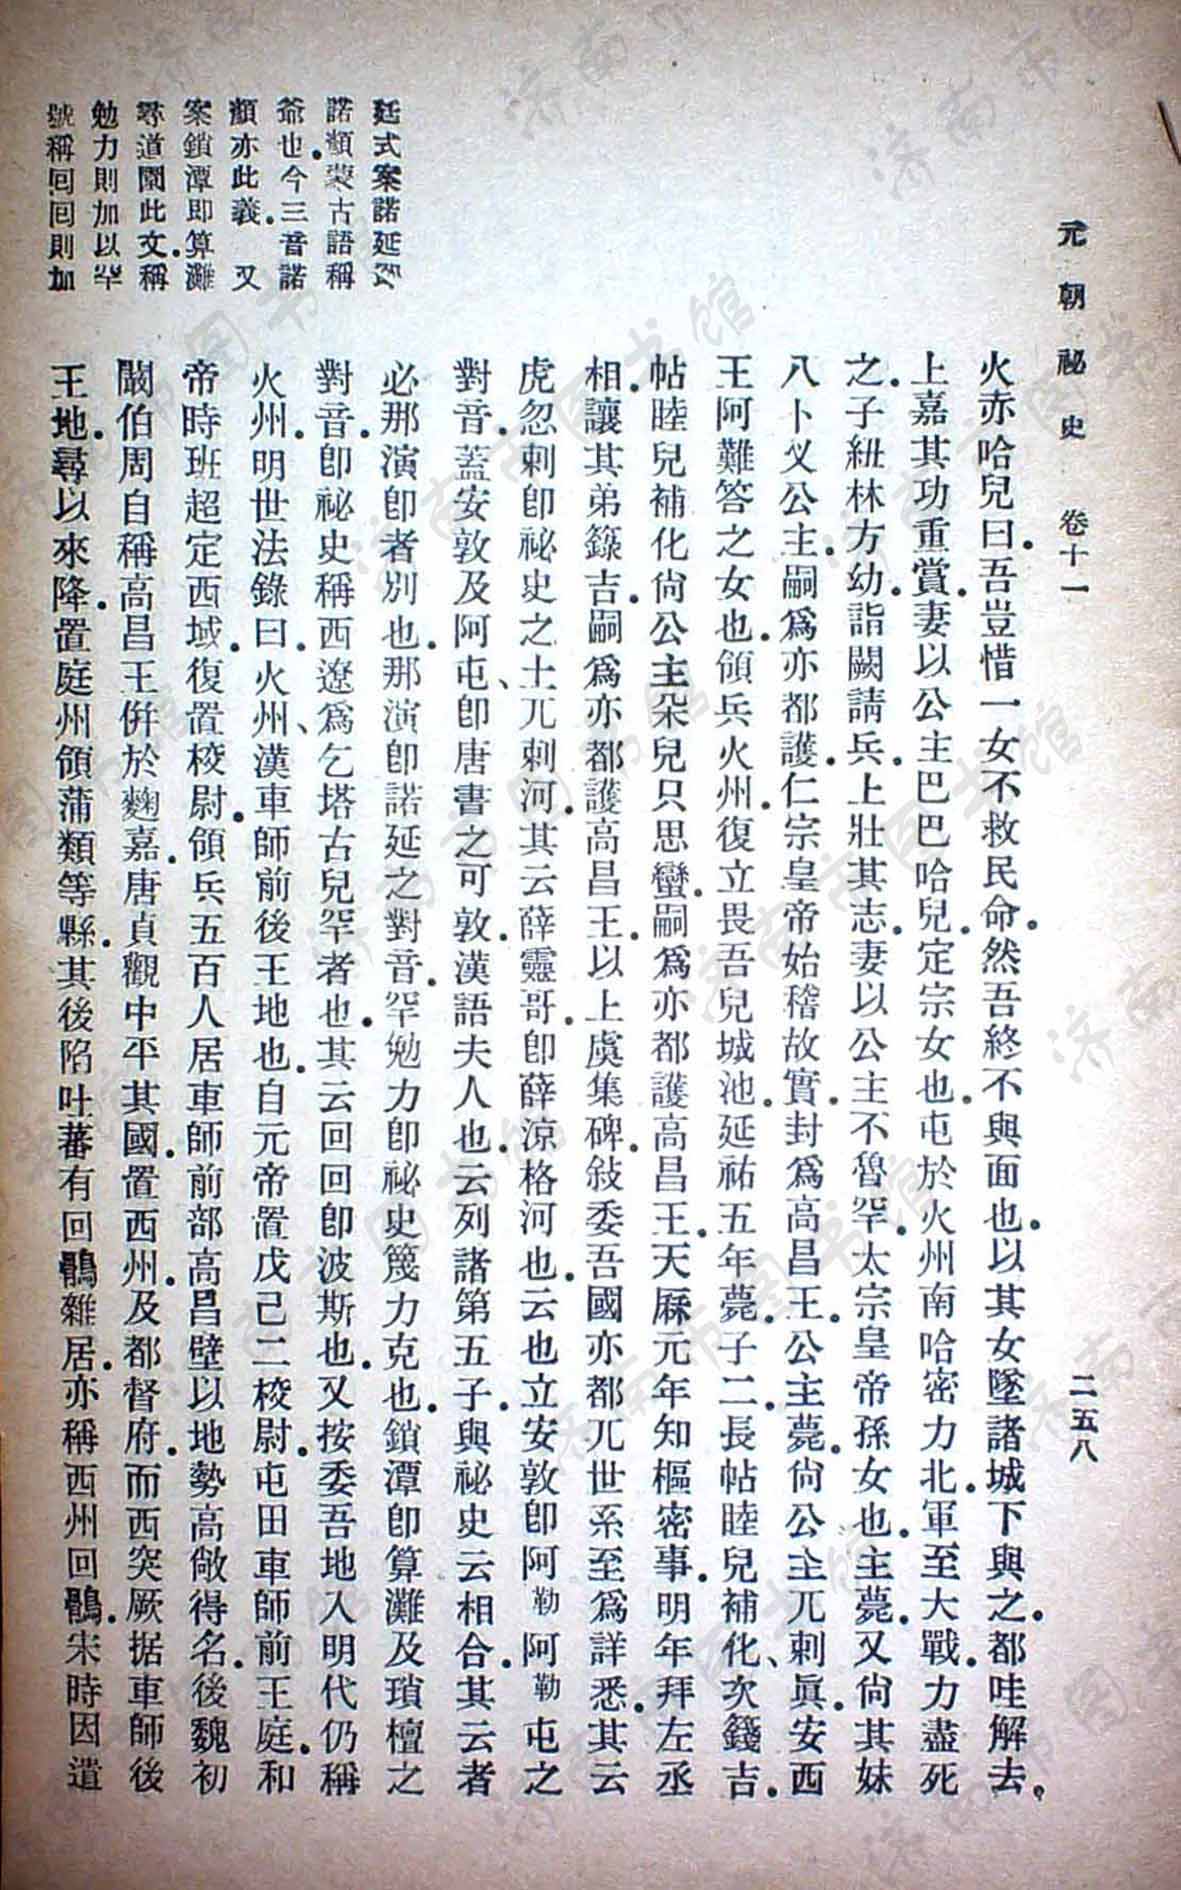 元朝祕史 卷十一 二五八
火赤哈兒曰吾豈惜一女不救民命。然吾終不與面也。以其女墜諸城下與之。都哇解去。
上嘉其功重賞。妻以公主巴巴哈兒。定宗女也。屯於火州南哈密力北。軍至大戰。力盡死
之。子紐林方幼。詣闕請兵。上壯其志。妻以公主不魯罕。太宗皇帝孫女也。主薨。又尙其妹
八卜叉公主。嗣爲亦都護。仁宗皇帝始稽故實。封爲高昌王。公主薨。尙公主兀剌眞。安西
王阿難答之女也。領兵火州。復立畏吾兒城池。延祐五年薨。子二。長帖睦兒補化、次籛吉。
帖睦兒補化尙公主朶兒只思蠻。嗣爲亦都護高昌王。天厤元年知樞密事。明年拜左丞
相。讓其弟籙吉。嗣爲亦都護高昌王。以上虞集碑。敍委吾國亦都兀世系至爲詳悉。其云
虎忽剌卽祕史之土兀剌河。其云薛靈哥。卽薛涼格河也。云也立安敦卽阿勒阿勒屯之
對音。蓋安敦及阿屯、卽唐書之可敦。漢語夫人也。云列諸第五子。與祕史云相合。其云者
必那演卽者別也。那演卽諾延之對音。罕勉力卽祕史篾力克也。鎖潭卽算灘及瑣檀之
對音。卽祕史稱西遼爲乞塔古兒罕者也。其云回回卽波斯也。又按委吾地入明代仍稱
火州。明世法錄曰。火州、漢車師前後王地也。自元帝置戊己二校尉。屯田車師前王庭。和
帝時班超定西域。復置校尉。領兵五百人居車師前部高昌壁以地勢高敞得名。後魏初
闞伯周自稱高昌王併於麴嘉。唐貞觀中平其國。置西州。及都督府。而西突厥据車師後
王地。尋以來降。置庭州領蒲類等縣。其後陷吐蕃有回鶻雜居。亦稱西州回鶻。宋時因遣
廷式案諾延
諾顏蒙古語稱
爺也。今三音諾
顏亦此義。 又
案鎖潭卽算灘
尋道闓此文。稱
勉力則加以罕
號稱回回則加